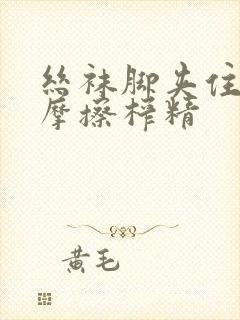 丝袜脚夹住
摩擦榨精
黄毛